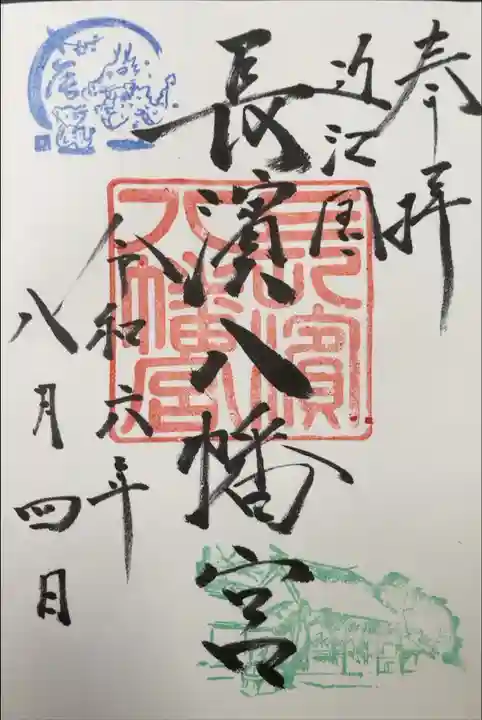 奉拝
近江國
長濱八幡宮
令和六年
八月四日
長濱
八幡宮